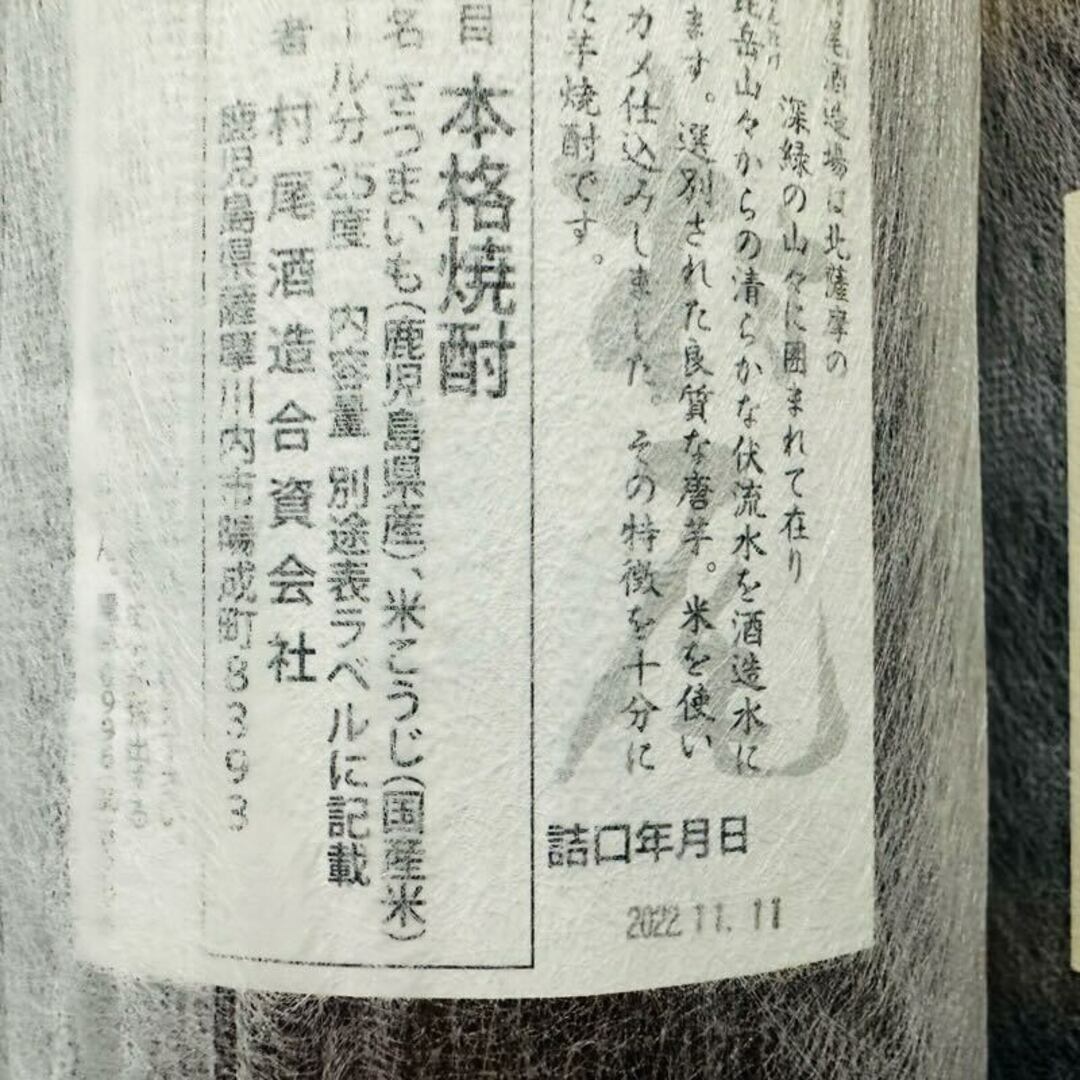 村尾酒造場は北薩摩の
深緑の山々に囲まれて在り
岳山々からの清らかな伏流水を酒造水に
ます。選別された良質な唐芋。米を使い
カメ仕込みしました。その特徴を十分に
に芋焼酎です。
詰口年月日
2022.11.11
目 本格焼酎
名 さつまいも(鹿児島県産)、米こうじ(国産米)
ール分 25度 内容量 別途表ラベルに記載
者 村尾酒造合資会社
鹿児島県薩摩川内市陽成町8393